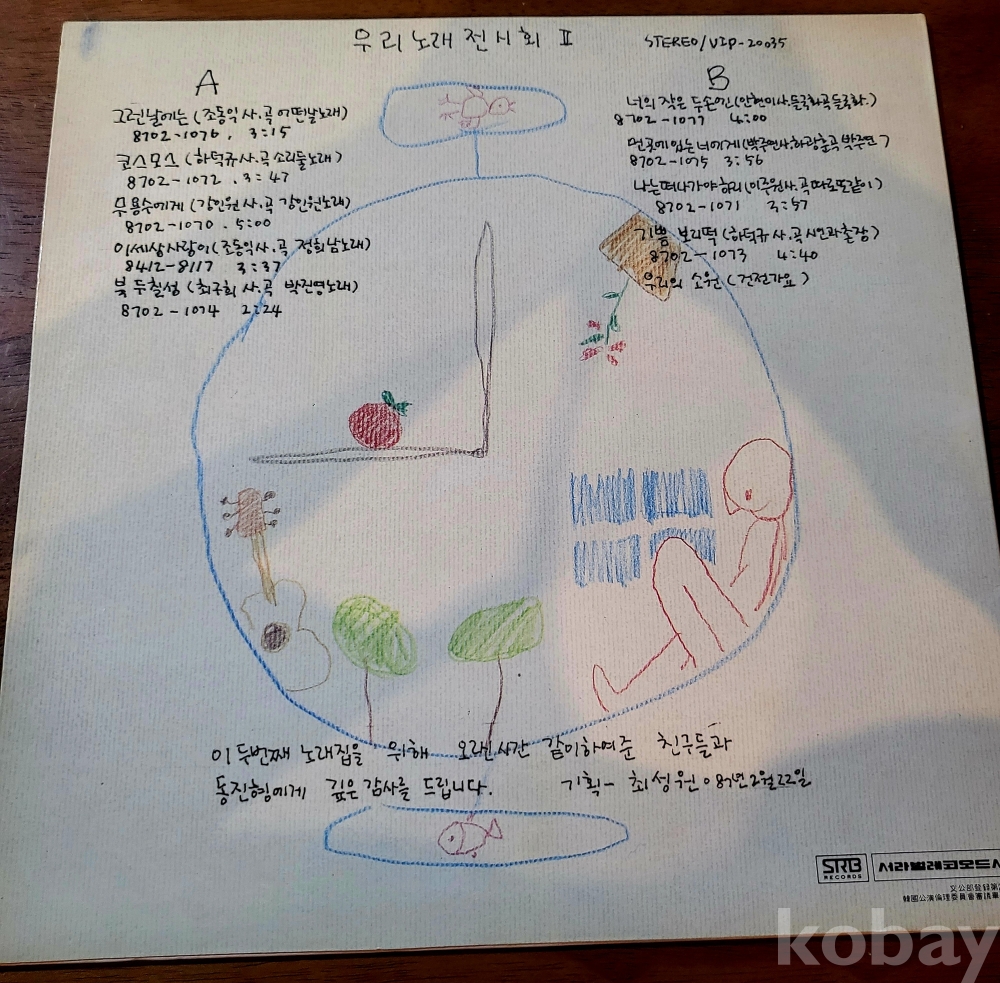 우리노래전시회 Ⅱ
STEREO/VIP-20035
A
그런날에는 (조동익 사.곡 어떤날노래)
8702-1076. 3:15
코스모스 (하덕규 사.곡 소리둘노래)
8702-1072. 3:47
무용수에게 (강인원 사.곡 강인원노래)
8702-1070. 5:00
이세상사랑이 (조동익 사.곡 정희남노래)
8412-8117 3:37
북두칠성 (최구희 사.곡 박진영노래)
8702-1074 2:24
B
너의 작은 두손엔 (안현미사.들국화곡 들국화.)
8702-1077 4:00
먼곳에 있는 너에게 (박주연사.하광훈곡 박주연)
8702-1075 3:56
나는 떠나가야하리 (이주원사.곡 따로또같이)
8702-1071 3:57
기쁨 보리떡 (하덕규 사.곡 시인과촌장)
8702-1073 4:40
우리의 소원 (건전가요)
이 두번째 노래집을 위해 오랜시간 같이하여준 친구들과
동진형에게 깊은 감사를 드립니다. 기획- 최성원 87년 2월 22일
SRB
RECORDS
서라벌레코드사
文公部登録第
韓國公演倫理委員會審議畢
kobay